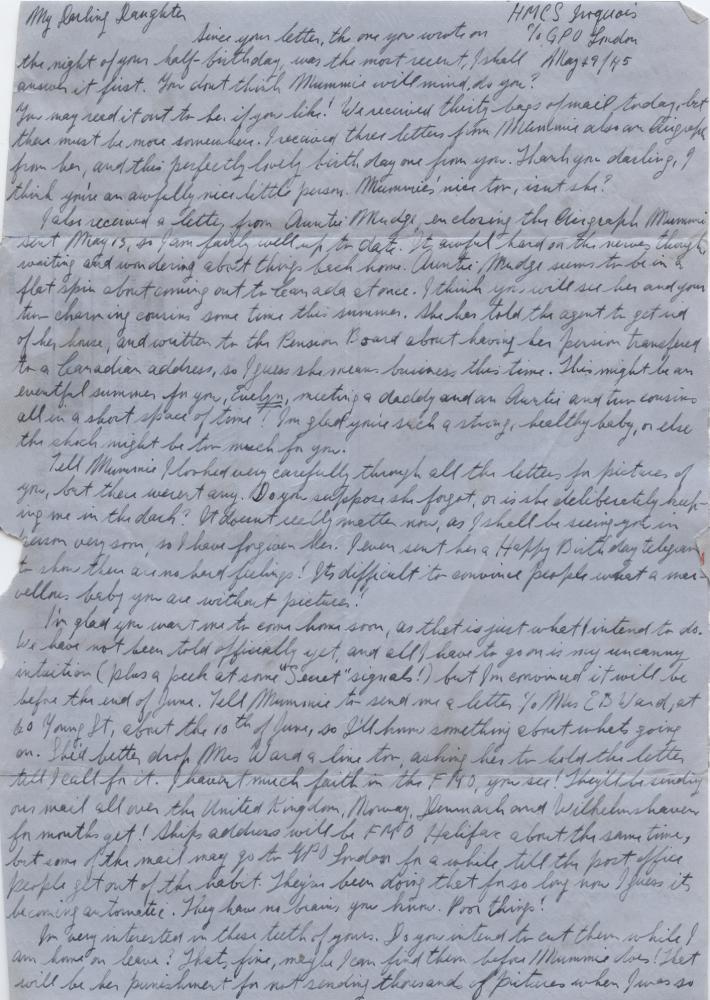 My Darling Daughter
HMCS Iroquois
℅ GPO London
May 29/45
Since your letter, the one you wrote on
the night of your half-birthday, was the most recent, I shall
answer it first. You dont think Mummie will mind, do you?
You may read it out to her if you like! We received thirty bags of mail today, but
there must be more somewhere. I received three letters from Mummie also an Airgraph
from her, and this perfectly lovely birthday one from you. Thank you darling, I
think you're an awfully nice little person. Mummie's nice too, isn't she?
I also received a letter from Auntie Mudge, enclosing the Airgraph Mummie
sent May 15, so I am fairly well up to date. It awful hard on the nerves though
waiting and wondering about things back home. Auntie Mudge seems to be in a
flat spin about coming out to Canada at once. I think you will see her and your
two charming cousins some time this summer. She has told the agent to get rid
of her house, and written to the Pension Board about having her pension transfered
to a Canadian address, so I guess she means business this time. This might be an
eventful summer for you, Evelyn, meeting a daddy and an Auntie and two cousins
all in a short space of time! I'm glad you're such a strong, healthy baby, or else
the shock might be too much for you.
Tell Mummie I looked very carefully through all the letters for pictures of
you, but there weren't any. Do you suppose she forgot, or is she deliberately keep-
ing me in the dark? It doesn't really matter now, as I shall be seeing you in
person very soon, so I have forgiven her. I even sent her a Happy Birthday telegram
to show there are no hard feelings! Its difficult to convince people what a mar-
vellous baby you are without pictures!
I'm glad you want me to come home soon, as that is just what I intend to do.
We have not been told officially yet, and all I have to go on is my uncanny
intuition (plus a peek at some "Secret" signals!) but I'm convinced it will be
before the end of June. Tell Mummie to send me a letter ℅ Mrs E B Ward, at
60 Young St, about the 10th of June, so I'll know something about whats going
on. She'd better drop Mrs Ward a line too, asking her to hold the letter
till I call for it. I haven't much faith in the FMO, you see! They'll be sending
our mail all over the United Kingdom, Norway, Denmark and Wilhelmshaven
for months yet! Ships address will be FMO Halifax about the same time,
but some of the mail may go to GPO London for a while till the post office
people get out of the habit. They've been doing that for so long now I guess its
becoming automatic. They have no brains you know. Poor things!
I'm very interested in these teeth of yours. Do you intend to cut them while I
am home on leave? That, fine, maybe I can find them before Mummie does! That
will be her punishment for not sending thousands of pictures when I was so